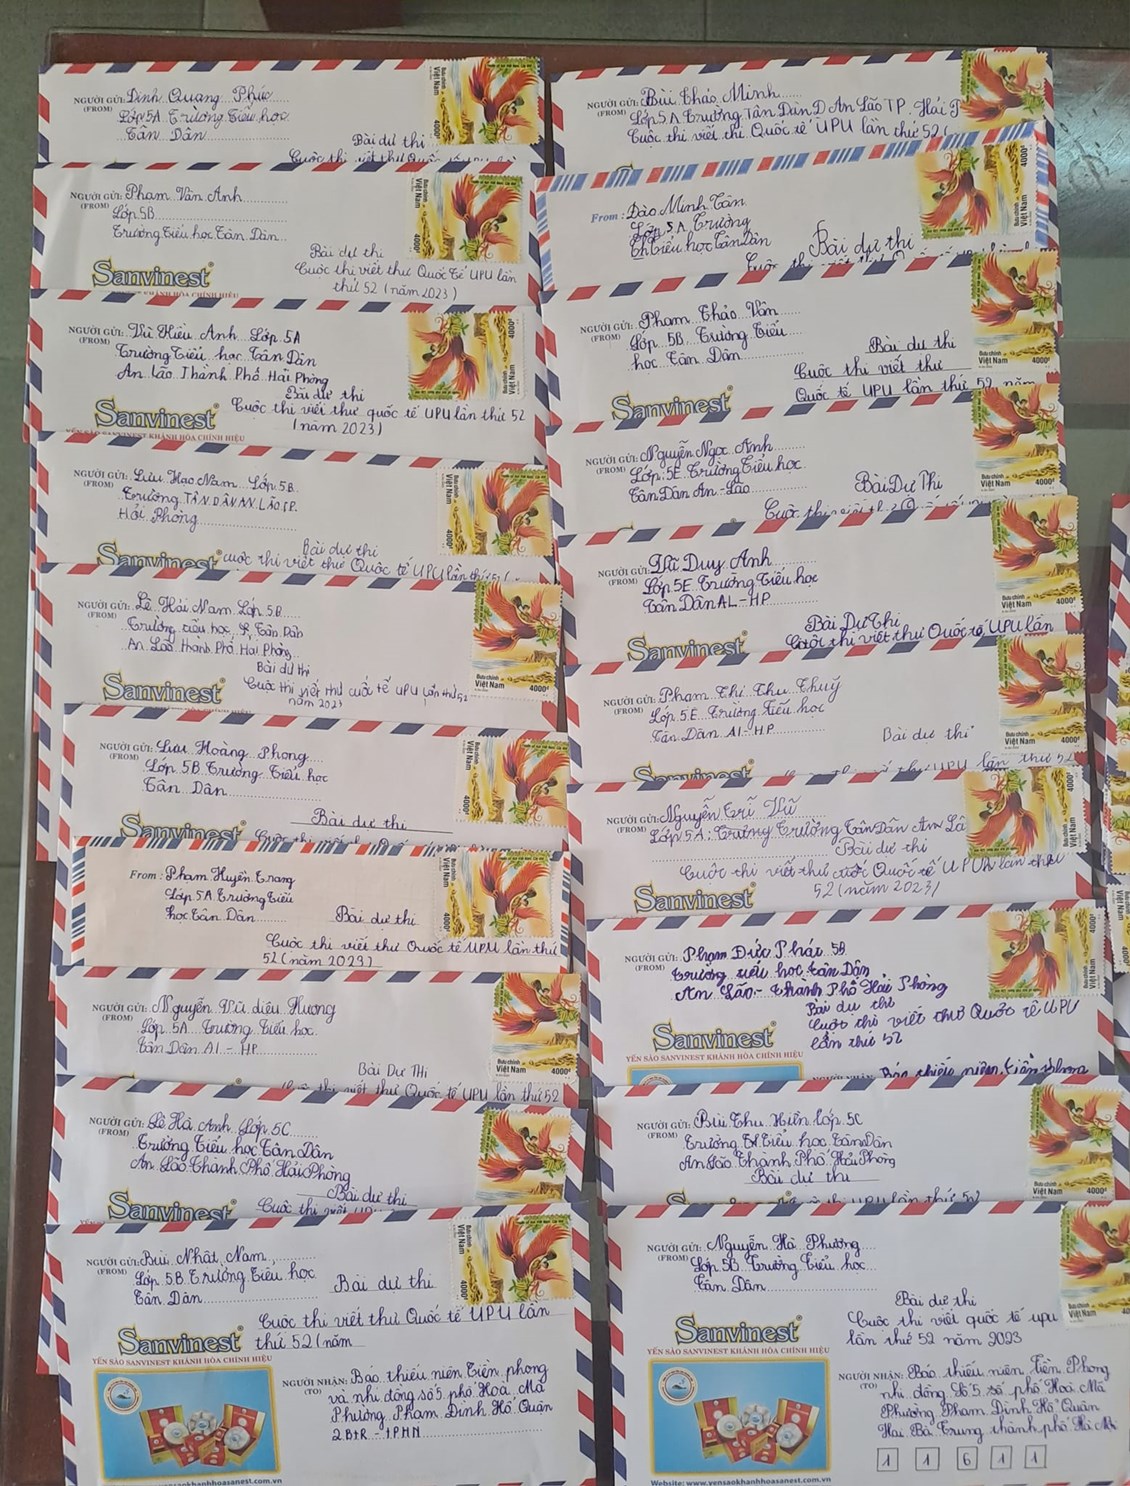 NGƯỜI GỬI: Đinh Quang Phúc
(FROM) Lớp 5A Trường Tiểu học
Tân Dân
Bài dự thi
Cuộc thi viết thư Quốc
Bưu chính
Việt Nam
4000đ
NGƯỜI GỬI: Phạm Vân Anh
(FROM) Lớp 5B
Trường Tiểu học Tân Dân
Bài dự thi
Cuộc thi viết thư Quốc Tế UPU lần
thứ 52 (năm 2023)
Sanvinest
Việt Nam
4000đ
NGƯỜI GỬI: Vũ Hiếu Anh Lớp 5A
(FROM) Trường Tiểu học Tân Dân
An Lão Thành Phố Hải Phòng
Bài dự thi
Cuộc thi viết thư quốc tế UPU lần thứ 52
(năm 2023)
Sanvinest
YẾN SÀO SANVINEST KHÁNH HÒA CHÍNH HIỆU
Việt Nam
4000đ
NGƯỜI GỬI: Lưu Hạo Nam Lớp 5B
(FROM) Trường TÂN DÂN AN LÃO TP.
Hải Phòng
Bài dự thi
Sanvinest cuộc thi viết thư Quốc tế UPU lần thứ 52 (
Việt Nam
4000đ
NGƯỜI GỬI: Lê Hải Nam Lớp 5B
(FROM) Trường tiểu học Tân Dân
An Lão Thành Phố Hải Phòng
Bài dự thi
Cuộc thi viết thư quốc tế UPU lần thứ 52
năm 2023
Sanvinest
Bưu chính
Việt Nam
4000đ
NGƯỜI GỬI: Lưu Hoàng Phong
(FROM) Lớp 5B Trường Tiểu học
Tân Dân
Bài dự thi
Sanvinest
Việt Nam
4000đ
From : Phạm Huyền Trang
Lớp 5A Trường Tiểu
học Tân Dân
Bài dự thi
Cuộc thi viết thư Quốc tế UPU lần thứ
52 (năm 2023)
Việt Nam
4000đ
NGƯỜI GỬI: Nguyễn Vũ diệu Hương
(FROM) Lớp 5A Trường Tiểu học
Tân Dân Al - HP
Bài Dự Thi
viết thư Quốc tế UPU lần thứ 52
Bưu chính
Việt Nam
4000đ
NGƯỜI GỬI: Lê Hà Anh Lớp 5C
(FROM) Trường Tiểu học Tân Dân
An Lão Thành Phố Hải Phòng
Bài dự thi
Sanvinest
Cuộc thi viết thư UPU
Bưu chính
Việt Nam
4000đ
NGƯỜI GỬI: Bùi Nhật Nam
(FROM) Lớp 5B Trường Tiểu học
Tân Dân
Bài dự thi
Cuộc thi viết thư Quốc tế UPU lần
thứ 52 (năm
Sanvinest
YẾN SÀO SANVINEST KHÁNH HÒA CHÍNH HIỆU
Việt Nam
4000đ
NGƯỜI NHẬN: Báo thiếu niên Tiền phong
(TO) và nhi đồng số 5 phố Hoà Mã
Phường Phạm Đình Hổ Quận
2.BtR - tPHN
www.yensaokhanhhoasanest.com.vn
NGƯỜI GỬI: Bùi Thảo Minh
(FROM) Lớp 5A Trường Tân Dân An Lão TP. Hải P
Cuộc thi viết thi Quốc tế UPU lần thứ 52 (
4000đ
From : Đào Minh Tân
Lớp 5A Trường
Tiểu học Tân Dân
Bài dự thi
Việt Nam
4000đ
NGƯỜI GỬI: Phạm Thảo Vân
(FROM) Lớp 5B Trường Tiểu
học Tân Dân
Bài dự thi
Cuộc thi viết thư
Quốc tế UPU lần thứ 52 năm
Sanvinest
Bưu chính
Việt Nam
4000đ
NGƯỜI GỬI: Nguyễn Ngọc Anh
(FROM) Lớp: 5E Trường Tiểu học
Tân Dân An - Lão
Bài Dự Thi
Bưu chính
Việt Nam
4000đ
NGƯỜI GỬI: Vũ Duy Anh
(FROM) Lớp 5E Trường Tiểu học
Tân Dân AL - HP
Bài Dự Thi
Cuộc thi viết thư Quốc tế UPU lần
Sanvinest
Bưu chính
Việt Nam
4000đ
NGƯỜI GỬI: Phạm Thị Thu Thuỷ
(FROM) Lớp 5E Trường Tiểu học
Tân Dân Al - HP
Bài dự thi
UPU lần thứ 52
Sanvinest
Bưu chính
Việt Nam
4000đ
NGƯỜI GỬI: Nguyễn Trí Vũ
(FROM) Lớp 5A: Trường Tân Dân An Lã
Bài dự thi
Cuộc thi viết thư Quốc tế UPU lần thứ
52 (năm 2023)
Sanvinest
Việt Nam
4000đ
NGƯỜI GỬI: Phạm Đức Phát 5B
(FROM) Trường tiểu học Tân Dân
An Lão - Thành Phố Hải Phòng
Bài dự thi
Cuộc thi viết thư Quốc tế UPU
lần thứ 52
Sanvinest
YẾN SÀO SANVINEST KHÁNH HÒA CHÍNH HIỆU
Việt Nam
4000đ
Báo thiếu niên tiền phong
NGƯỜI GỬI: Bùi Thu Hiền lớp 5C
(FROM) Trường Tiểu học Tân Dân
An Lão Thành Phố Hải Phòng
Bài dự thi
UPU lần thứ 52
Bưu chính
Việt Nam
4000đ
NGƯỜI GỬI: Nguyễn Hà Phương
(FROM) Lớp 5B Trường Tiểu học
Tân Dân
Bài dự thi
Cuộc thi viết quốc tế upu
lần thứ 52 năm 2023
Sanvinest
YẾN SÀO SANVINEST KHÁNH HÒA CHÍNH HIỆU
Bưu chính
Việt Nam
4000đ
NGƯỜI NHẬN: Báo thiếu niên tiền Phong
(TO) nhi đồng số 5 phố Hoà Mã
Phường Phạm Đình Hổ Quận
Hai Bà Trưng thành phố Hà
1 1 6 1 1
Website: www.yensaokhanhhoasanest.com.vn